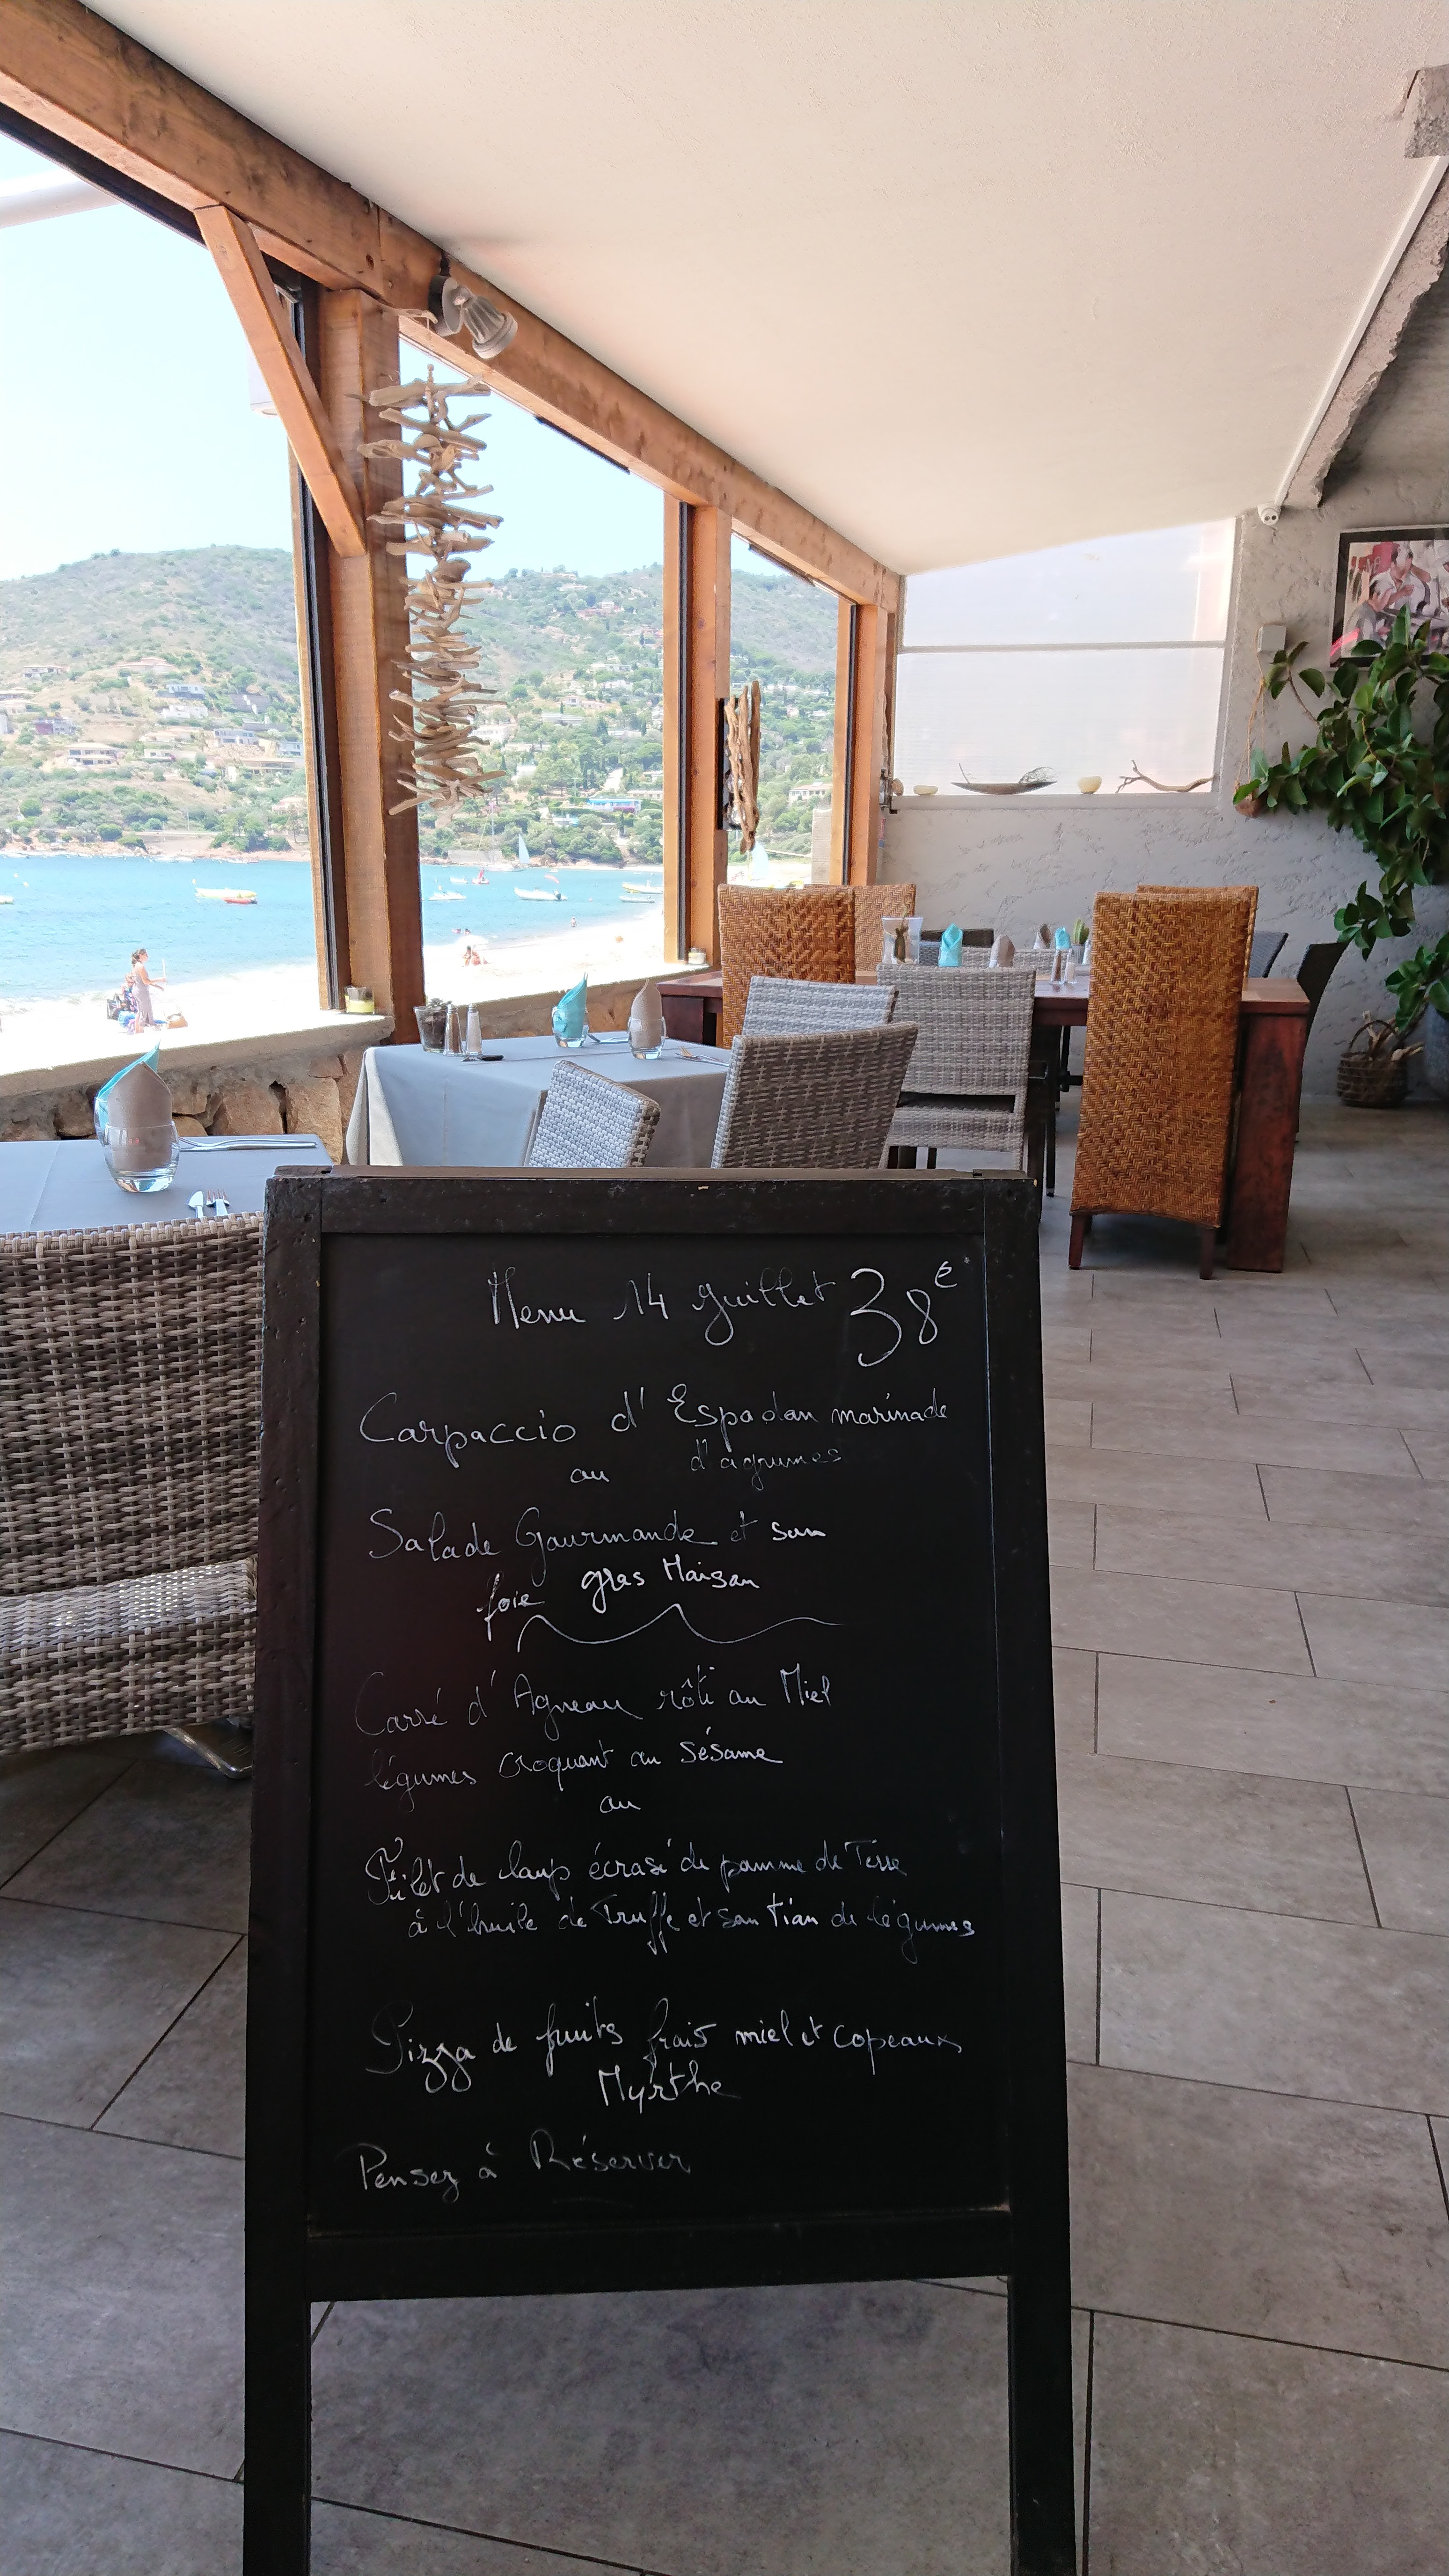 Menu 14 Juillet 38€
Carpaccio d'Espadon marinade
ou d'agrumes
Salade Gourmande et son
foie gras Maison
Carré d'Agneau rôti au Miel
légumes croquant au Sésame
ou
Filet de loup écrasé de pomme de Terre
à l'huile de Truffe et son tian de légumes
Pizza de fruits frais miel et copeaux
Myrthe
Pensez à Réserver